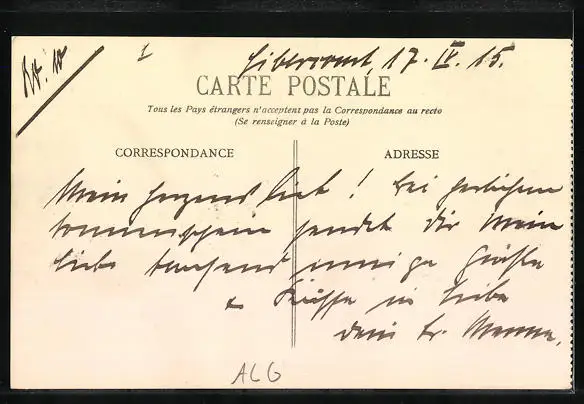 Libercourt, 17. IV. 15.
1
CARTE POSTALE
Tous les Pays étrangers n'acceptent pas la Correspondance au recto
(Se renseigner à la Poste)
CORRESPONDANCE
ADRESSE
Mein herzens lieb! Bei herlichem
Sonnenschein sendet dir mein
Lieb tausend innige Grüße
& Küsse in Liebe
dein tr. Manne.
ALG